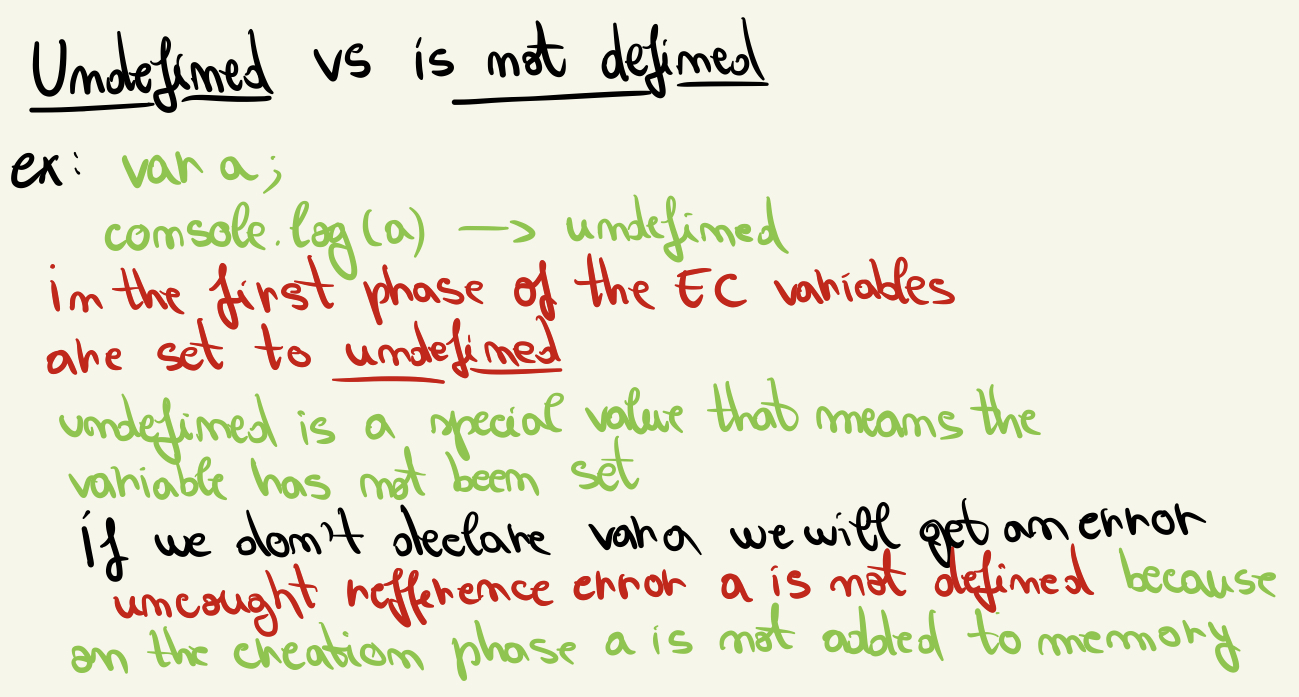 Undefined vs is not defined
ex: var a;
console.log(a) → undefined
in the first phase of the EC variables
are set to undefined
undefined is a special value that means the
variable has not been set
if we don't declare var a we will get an error
uncought refference error a is not defined because
on the creation phase a is not added to memory